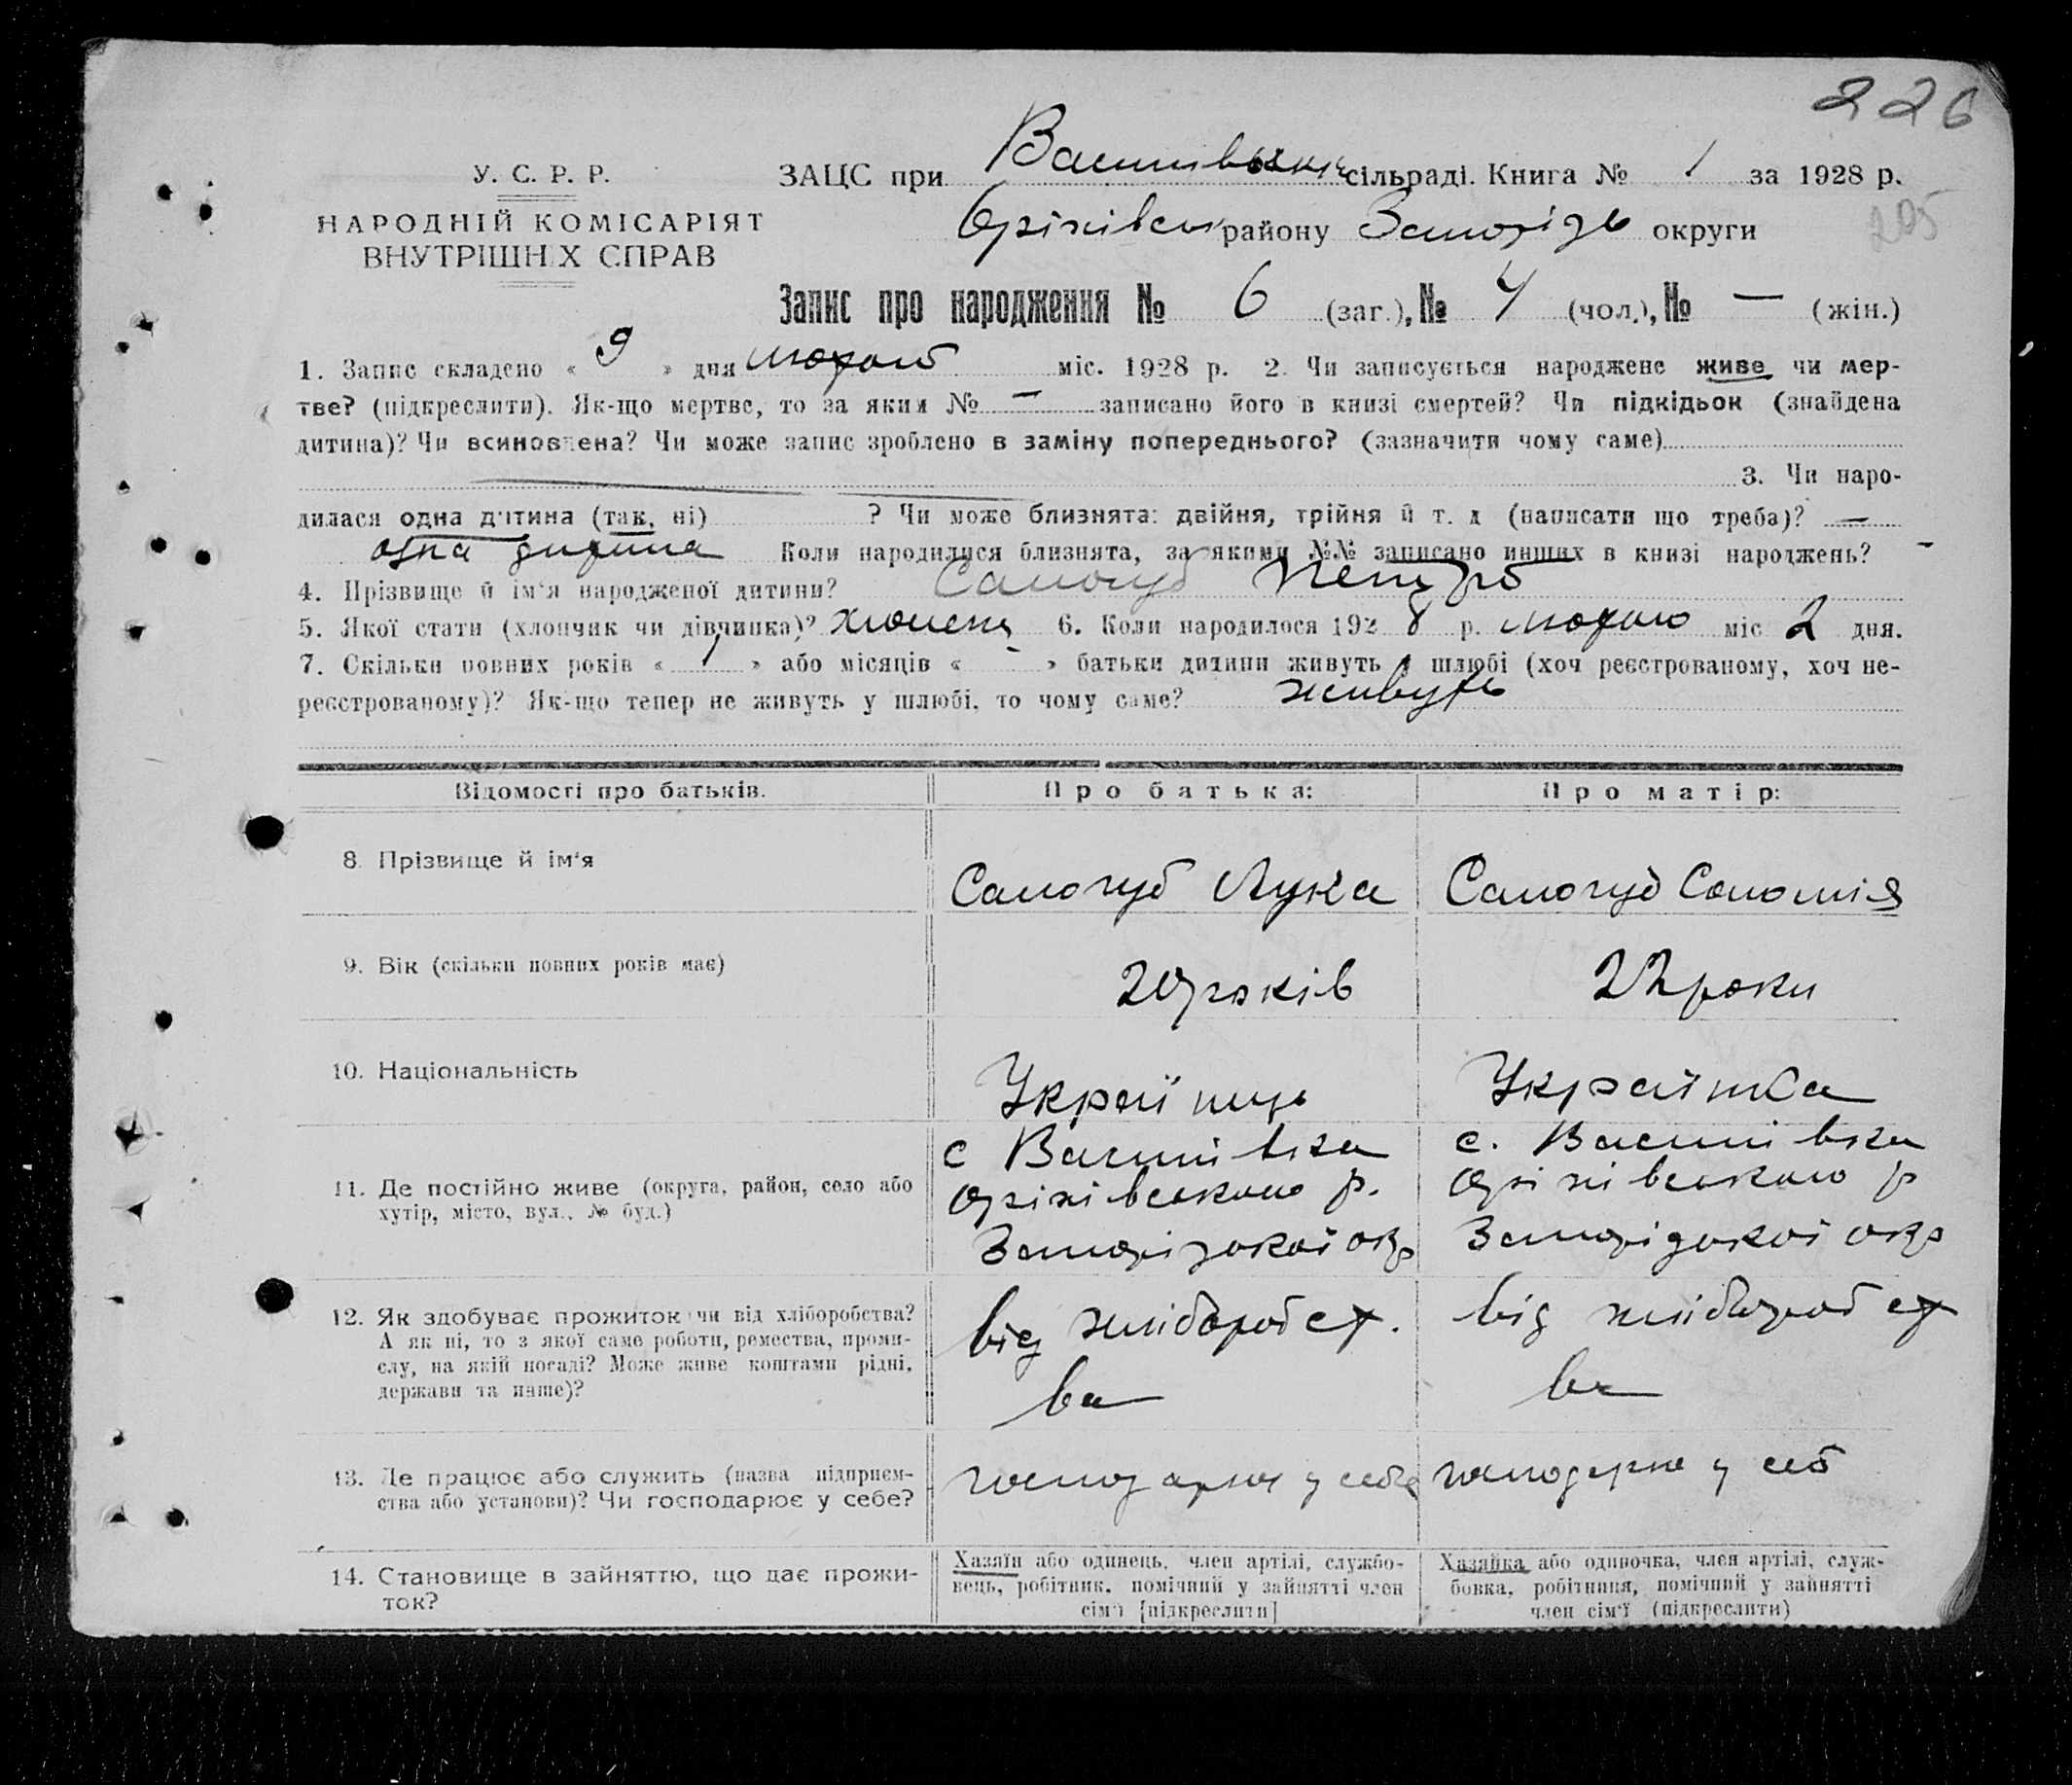 226
У. С. Р. Р.
НАРОДНІЙ КОМІСАРІЯТ
ВНУТРІШН Х СПРАВ
ЗАЦС при сільраді. Книга № 1 за 1928 р.
205
Оріхівськ району Запорізь округи
Запис про народження № 6 (заг.), № 4 (чол.), № — (жін.)
1. Запис складено « 9 » дня лютого міс. 1928 р. 2. Чи записується народжене живе чи мер-
тве? (підкреслити). Як-що мертве, то за яким № — записано його в книзі смертей? Чи підкідьок (знайдена
дитина)? Чи всиновлена? Чи може запис зроблено в заміну попереднього? (зазначити чому саме)
3. Чи наро-
дилася одна дитина (так, ні) ? Чи може близнята: двійня, трійня й т. д (написати що треба)? —
одна дитина Коли народилися близнята, за якими №№ записано инших в книзі народжень? -
4. Прізвище й ім'я народженої дитини? Самогуб Петро
5. Якої стати (хлопчик чи дівчинка)? хлопець 6. Коли народилося 192 8 р. лютого міс 2 дня.
7. Скільки повних років « 1 » або місяців « - » батьки дитини живуть у шлюбі (хоч реєстрованому, хоч не-
реєстрованому)? Як-що тепер не живуть у шлюбі, то чому саме? живуть
Відомості про батьків. Про батька: Про матір:
8. Прізвище й ім'я Самогуб Лука Самогуб Соломія
9. Вік (скільки повних років має) 20 років 22 роки
10. Національність Українць Українка
11. Де постійно живе (округа, район, село або хутір, місто, вул., № буд.)
с Василівка с. Василівка
Оріхівського р. Оріхівського р
Запорізької окр Запорізької окр
12. Як здобуває прожиток чи від хліборобства?
А як ні, то з якої саме роботи, ремества, проми-
слу, на якій посаді? Може живе коштами рідні,
держави та инше)?
від хліборобст. від хліборобст
ва ва
13. Де працює або служить (назва підприєм-
ства або установи)? Чи господарює у себе?
господарює у себе господарює у себ
14. Становище в зайняттю, що дає прожи-
ток?
Хазяїн або одинець, член артілі, службо-
вець, робітник, помічний у зайнятті член
сім'ї [підкреслити]
Хазяйка або одиночка, член артілі, служ-
бовка, робітниця, помічний у зайнятті
член сім'ї (підкреслити)